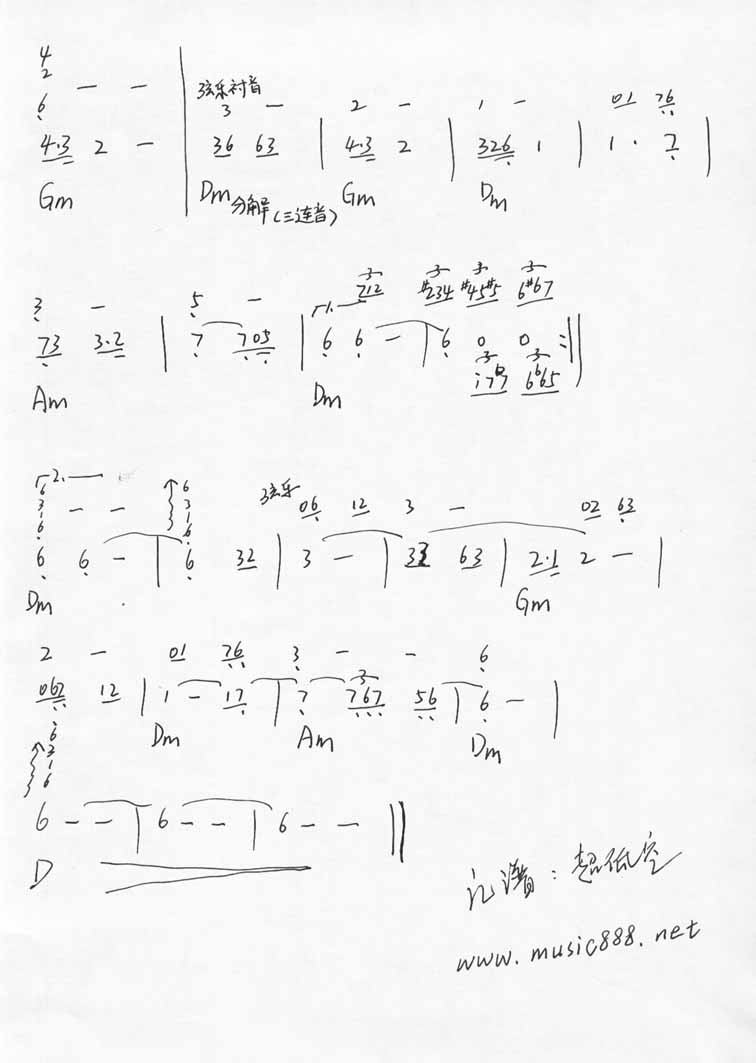 4
2
6 — —
4·3 2 — | 36 63 | 4·3 2 | 326 1 | 1· 7 |
弦乐衬音
3 — 2 — 1 — 01 76
Gm Dm 分解(三连音) Gm Dm
3 — 5 — 712 #234 #45#5 6#67
73 3·2 | 7 705 | 6 6 — | 6 0 0 :||
i7b7 6b65
Am Dm
2.
6
3 — — 6
1 3
6 1
6
弦乐 06 12 3 — 02 63
6 6 — | 6 32 | 3 — | 33 63 | 2·1 2 — |
Dm Gm
2 — 01 76 3 — — 6
067 12 | 1 — 17 | 7 767 56 | 6 — |
Dm Am Dm
6
3
1
6
6 — — | 6 — — | 6 — — ||
D
记谱：超低空
www.music888.net